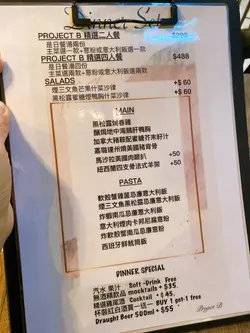 Dinner Set
PROJECT B 精選二人餐 $298
是日餐湯兩份
主菜選一款+意粉或意大利飯選一款
PROJECT B 精選四人餐 $488
是日餐湯四份
主菜選兩款+意粉或意大利飯選兩款
SALADS
煙三文魚芒果什菜沙律 +$60
黑松露蜜糖煙鴨胸什菜沙律 +$60
MAIN
黑松露焗春雞
釀焗地中海鷄肝鴨胸
加拿大豬鞍配蜜糖芥末籽汁
嘉璐達州燒美國豬肩骨
馬沙拉美國肉眼扒 +50
紐西蘭四支骨法式羊架 +50
PASTA
軟殼蟹雞蓉忌廉意大利飯
煙三文魚黑松露忌廉意大利飯
炸蝦南瓜忌廉意大利飯
意大利煙肉卡邦尼雞意粉
炸軟殼蟹南瓜忌廉意粉
西班牙鮮魷筒飯
DINNER SPECIAL
汽水 果汁 Soft-Drink Free
無酒精飲品 mocktails + $35.
精選雞尾酒 Cocktail + $45.
杯裝紅白酒買一送一 BUY 1 get 1 free
Draught Beer 500ml + $55
Project B